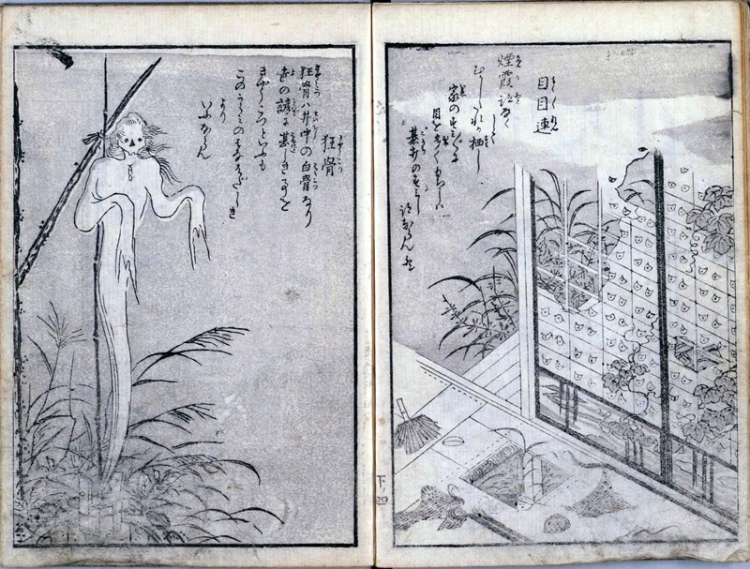 目目連
煙霞跡なくして
むかしたれか栖し
家のすみ〴〵に
目を多くもちしハ
碁打のすみし
跡ならんか
狂骨
狂骨ハ井中の白骨なり
世の諺に甚しき事を
きやうこつといふも
このうらみのはなはだしき
より
いふならん
下 四